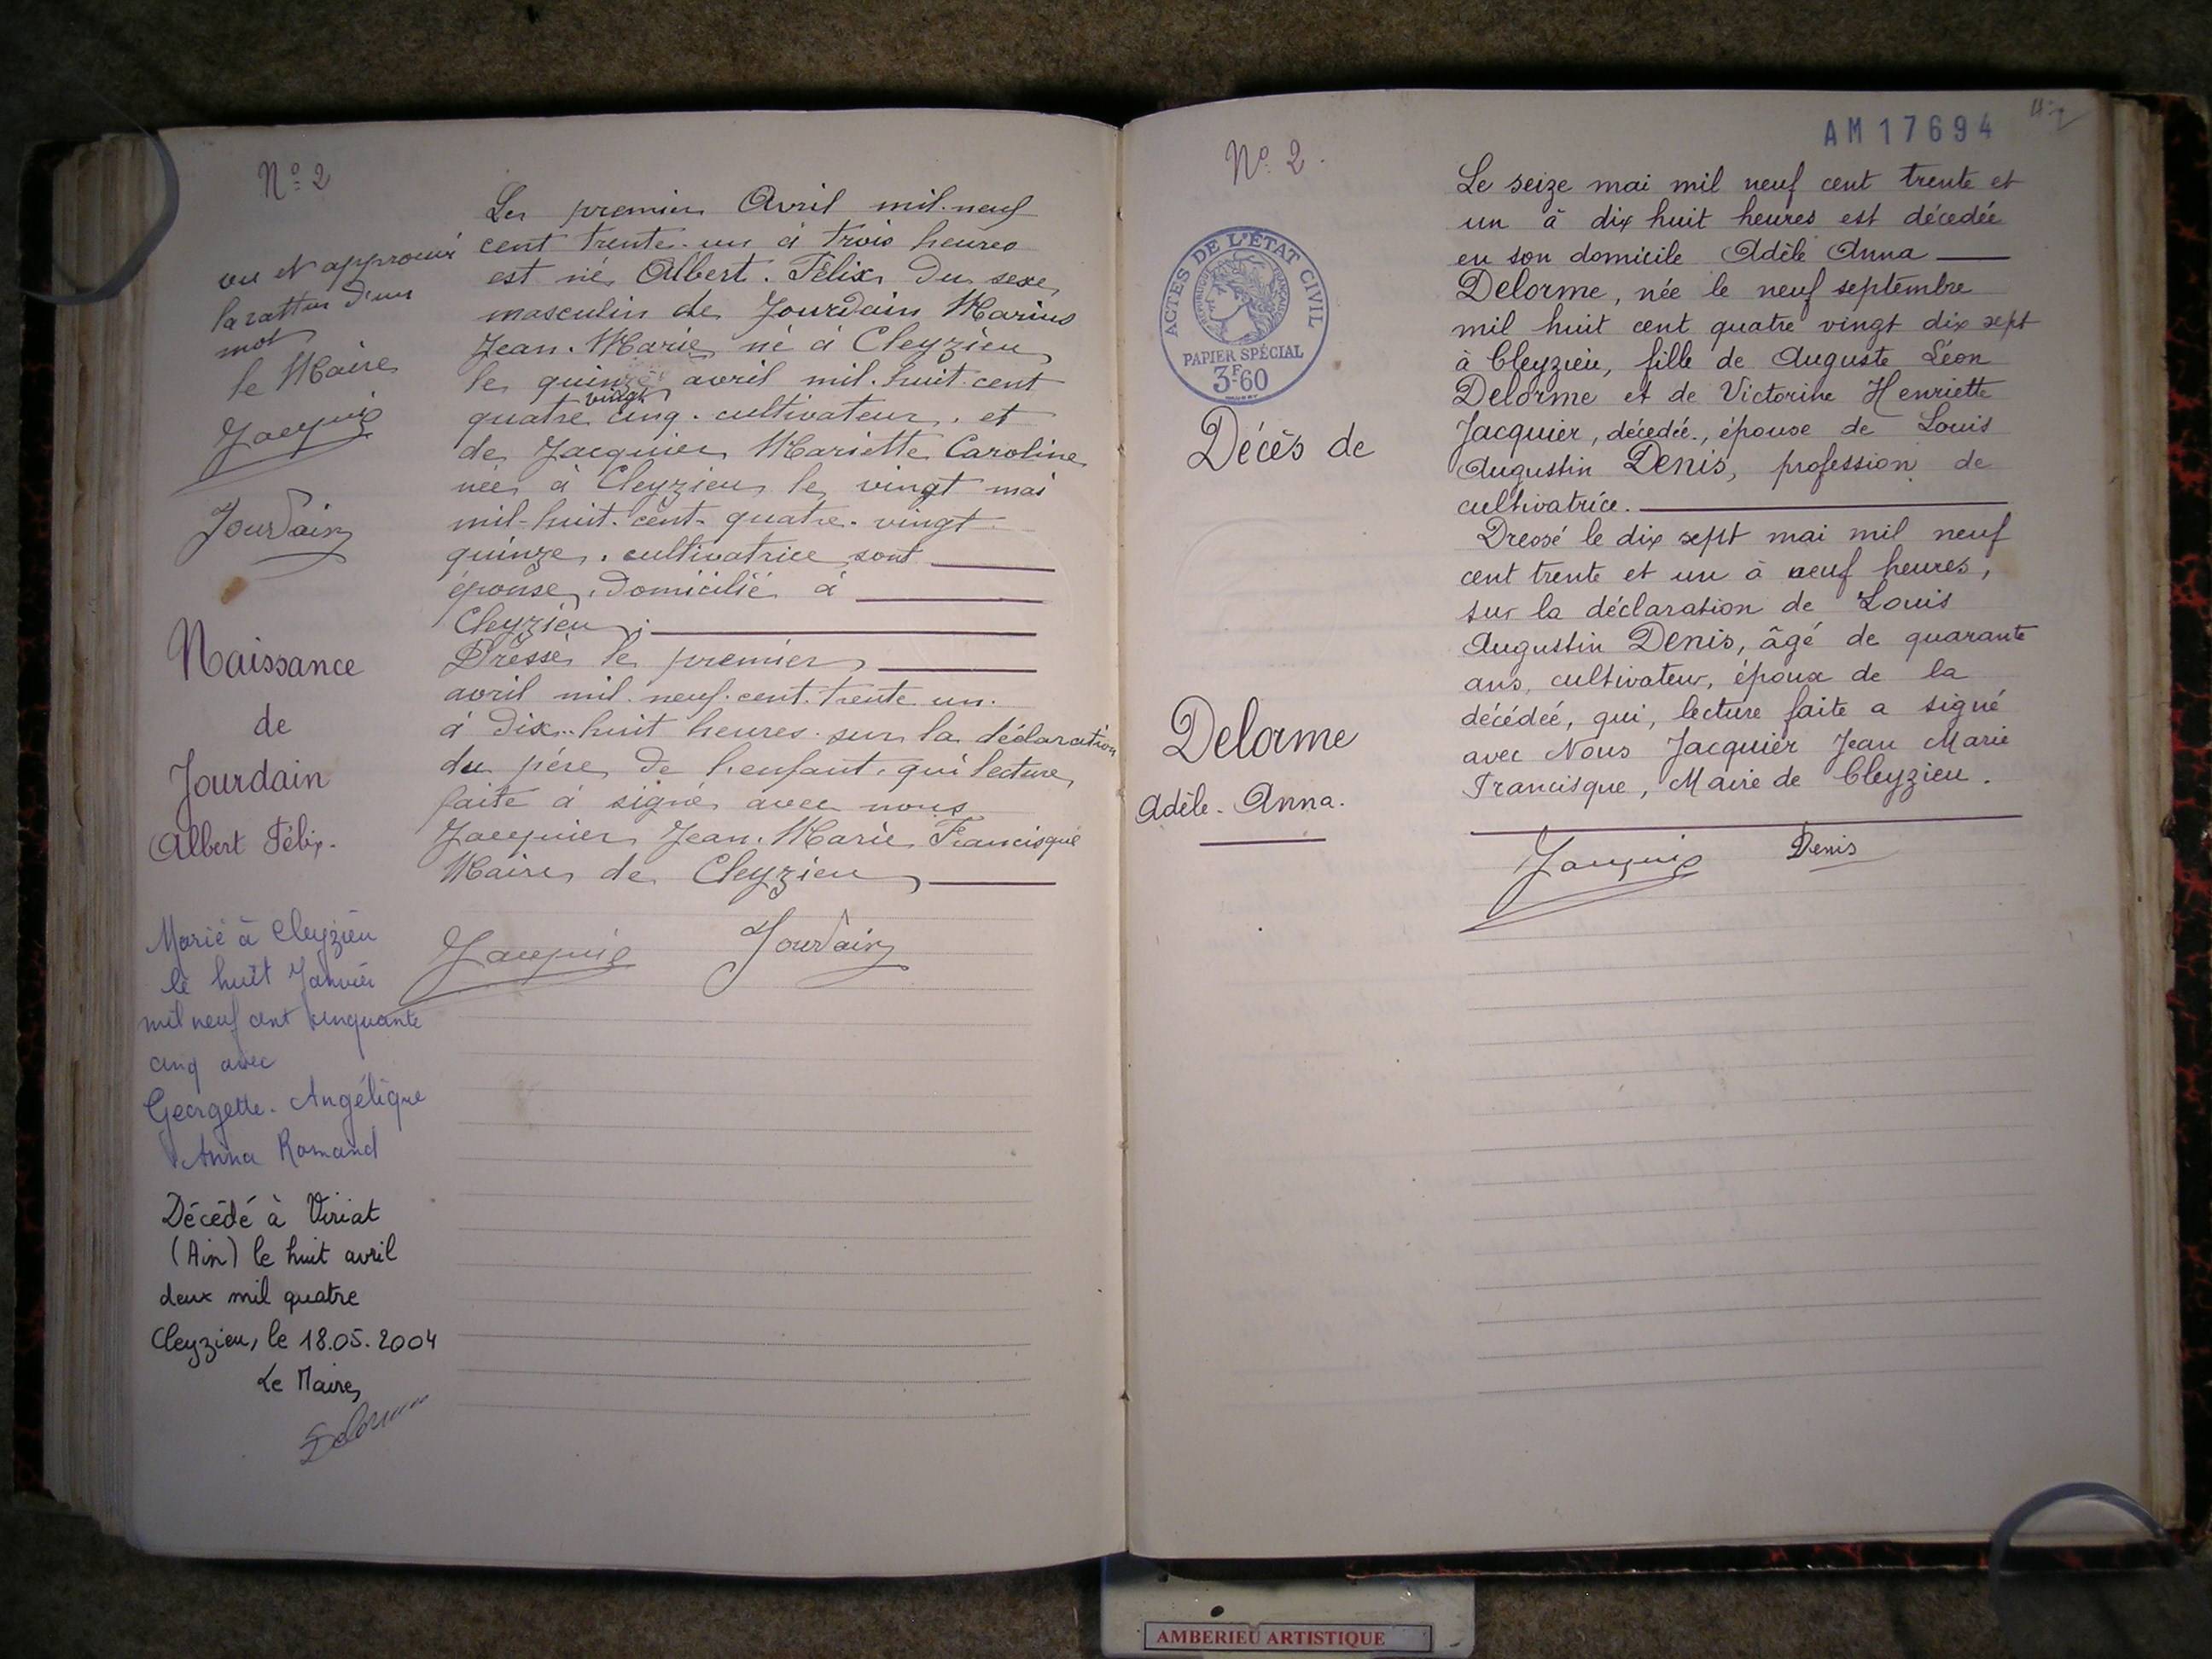 Nº 2
vu et approuvé
la ratture d'un
mot
le Maire
Jacquie
Jourdain
Naissance
de
Jourdain
Albert Félix.
Marié à Cleyzieu
le huit Janvier
mil neuf cent cinquante
cinq avec
Georgette. Angélique
Anna Romand
Décédé à Viriat
(Ain) le huit avril
deux mil quatre
Cleyzieu, le 18.05.2004
Le Maire,
Le premier Avril mil neuf
cent trente un à trois heures
est né Albert. Félix du sexe
masculin de Jourdain Marius
Jean. Marie né à Cleyzieu
le quinze avril mil. huit cent
quatre vingt cinq. cultivateur. et
de Jacquier Mariette Caroline
née à Cleyzieu le vingt mai
mil-huit-cent-quatre-vingt
quinze. cultivatrice sont
épouse, domicilié à
Cleyzieu.
Dressé le premier
avril mil. neuf. cent. trente un.
à dix-huit heures sur la déclaration
du père de l'enfant, qui lecture
faite à signé avec nous
Jacquier Jean. Marie Francisque
Maire de Cleyzieu
Jacquie Jourdain
AM17694
Nº 2.
ACTES DE L'ÉTAT CIVIL
RÉPUBLIQUE FRANÇAISE
PAPIER SPÉCIAL
3F60
Décès de
Delorme
Adèle. Anna.
Le seize mai mil neuf cent trente et
un à dix huit heures est décedée
en son domicile Adèle Anna
Delorme, née le neuf septembre
mil huit cent quatre vingt dix sept
à Cleyzieu, fille de Auguste Léon
Delorme et de Victorine Henriette
Jacquier, décedée., épouse de Louis
Augustin Denis, profession de
cultivatrice.
Dressé le dix sept mai mil neuf
cent trente et un à neuf heures,
sur la déclaration de Louis
Augustin Denis, âgé de quarante
ans, cultivateur, époux de la
décédée, qui, lecture faite a signé
avec Nous Jacquier Jean Marie
Francisque, Maire de Cleyzieu.
Jacquie Denis
AMBERIEU ARTISTIQUE